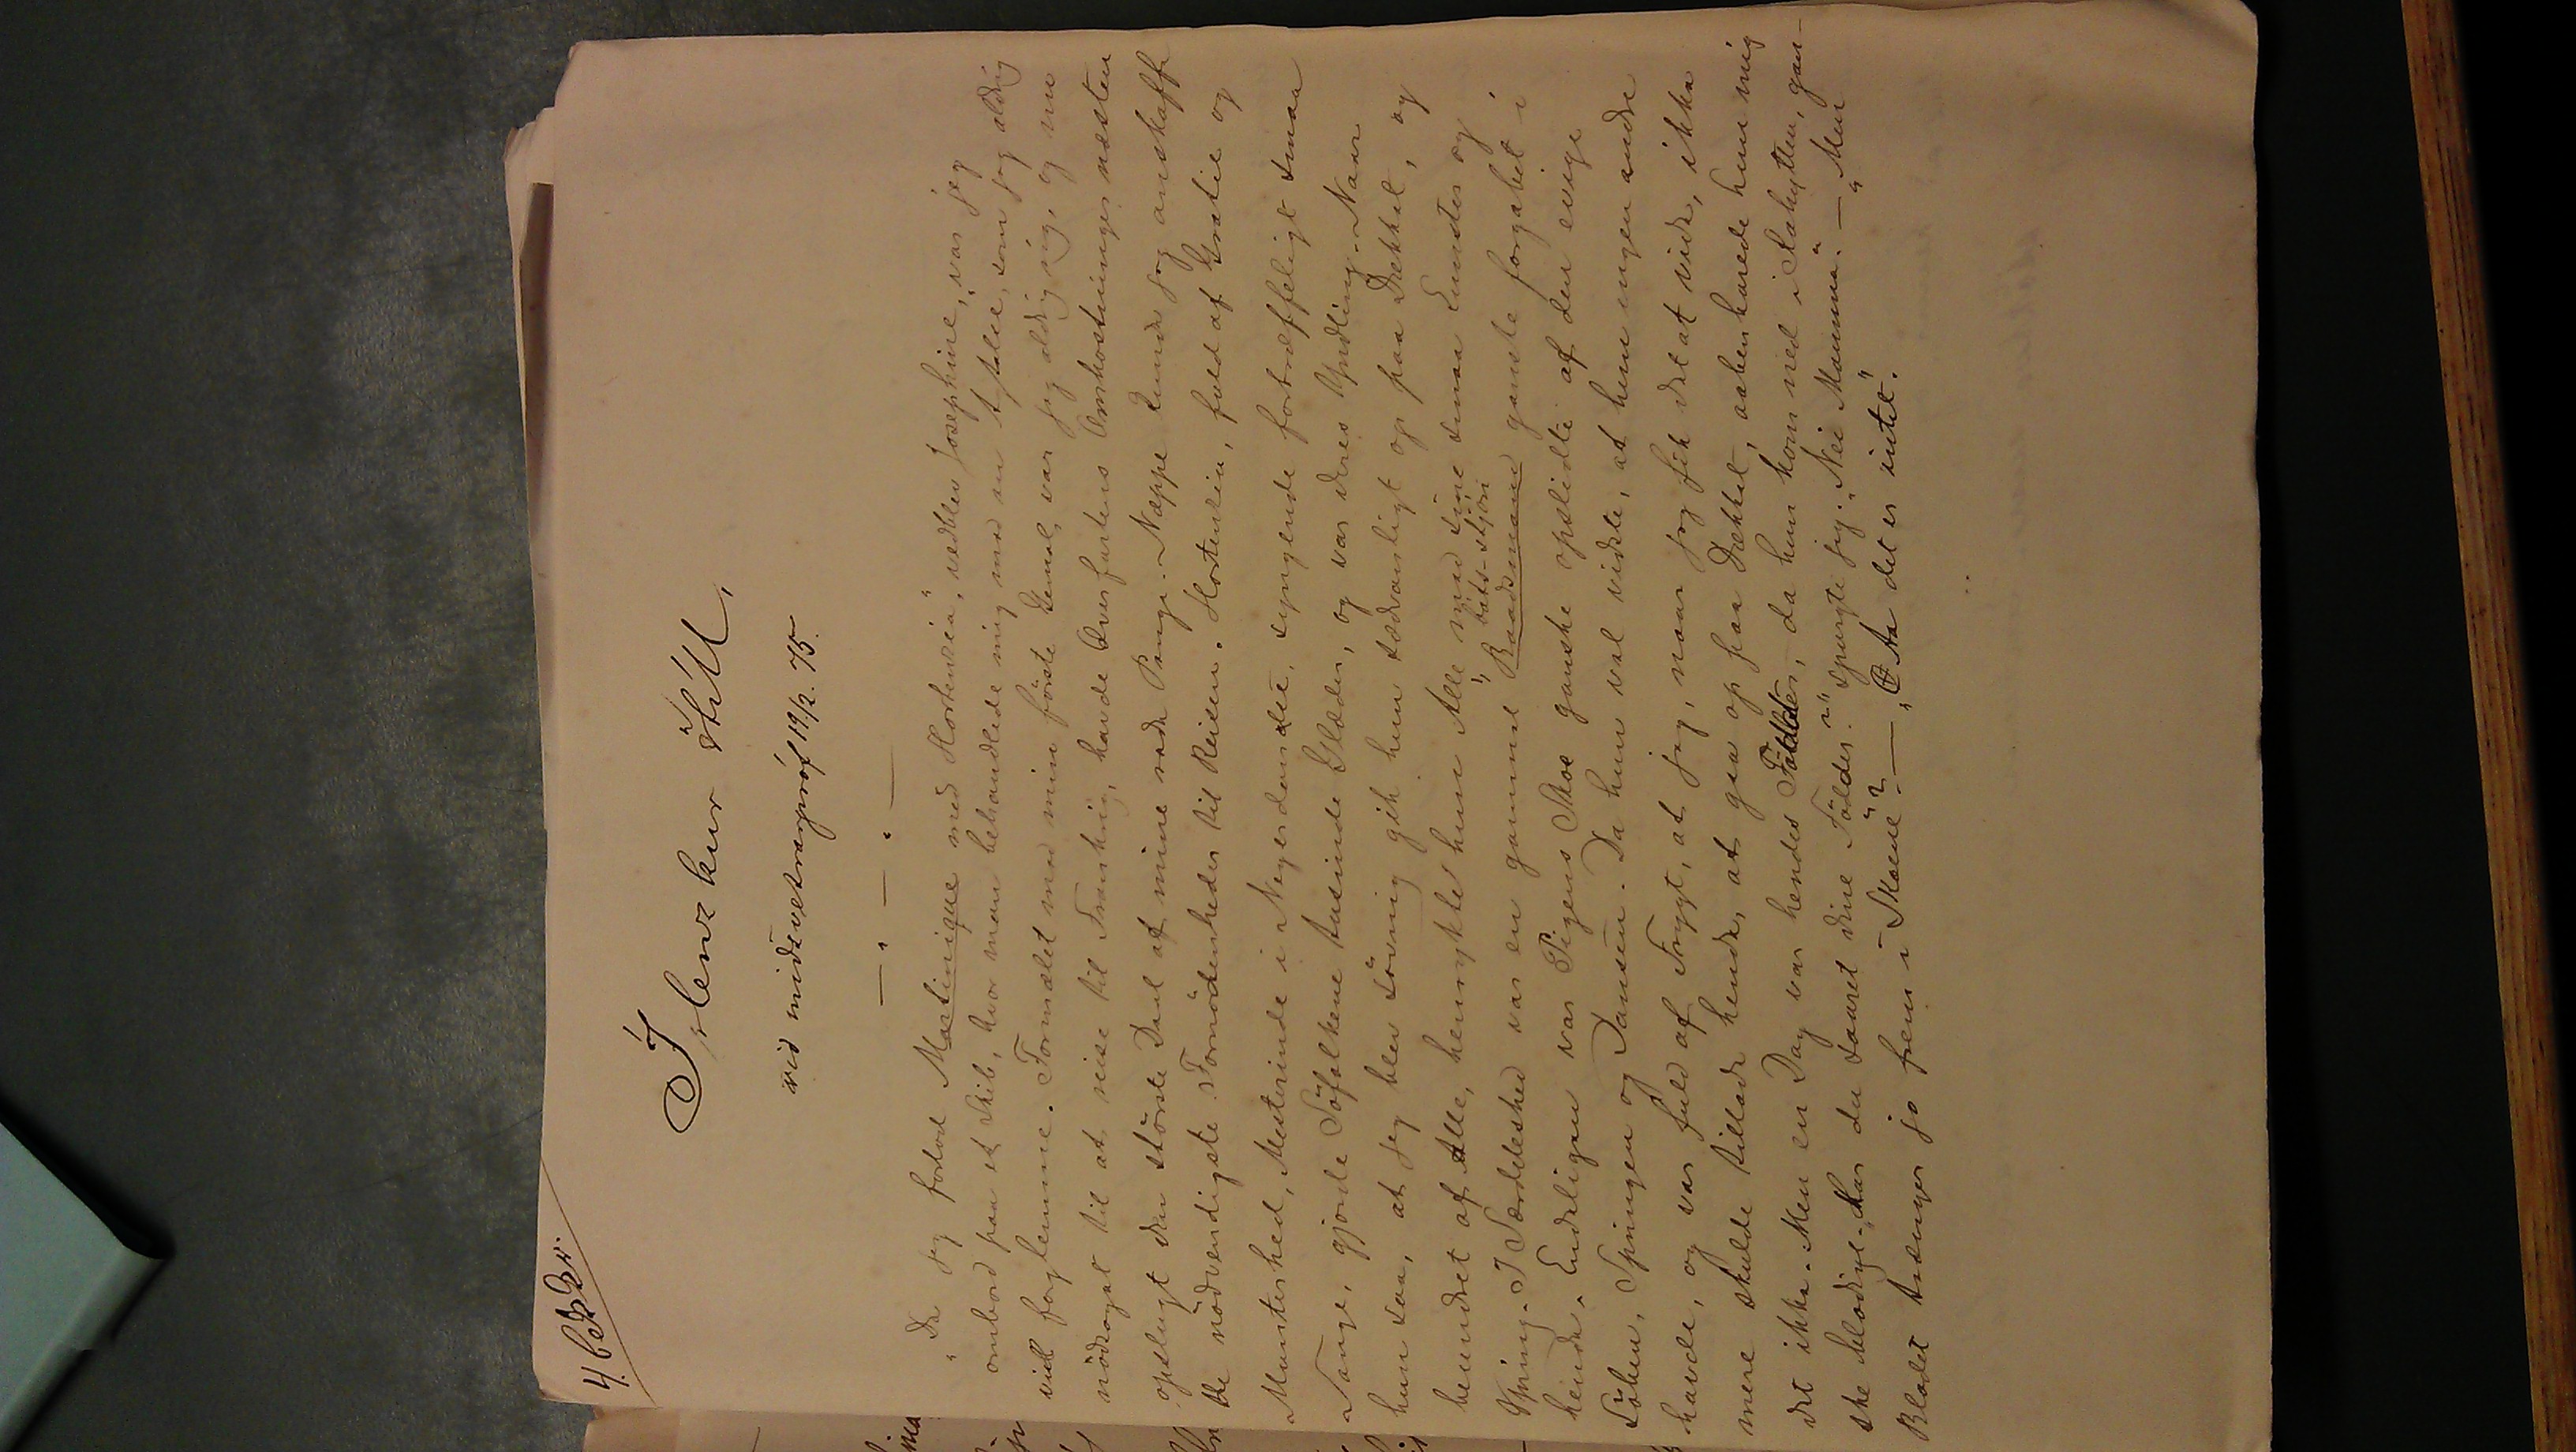 4. bekkr.
Íslenzkur stíll,
við miðsvetrarpróf 19/2. 75.
„Da jeg forlod Martinique med Hortensia“, vedblev Josephine, „var jeg
ombord paa et Skib, hvor man behandlede mig med en Afsky, som jeg aldrig
vill forglemme. Formælet med min förste Gemal, var jeg aldrig rig, og nu
nödsaget til at reise til Frankrig, havde Overfartens Omkostninger næsten
opslugt den störste Deel af mine rede Penge. Neppe kunde jeg anskaffe
de nödvendigste Fornödenheder til Reisen. Hortensia, fuld af Gratie og
Munterhed, Mesterinde i Negerdandse, syngende fortræffeligt smaa
Sange, gjorde Söfolkene tusinde Glæder, og var deres Yndling. Naar
hun saa, at jeg blev sövnig gik hun sædvanligt op paa Dækket, og
beundret af Alle, henrykte hun Alle med sine smaa Kunster og
báts-stjóri
Spring. I Særdeleshed var en gammel „Baadsmand ganske forgabet i
hende. Endeligen var Pigens Skoe ganske opslidte af den evige
Löben, Springen og Dansen. Da hun vel vidste, at hun ingen andre
havde, og var fuld af Frygt, at jeg, naar jeg fik det at vide, ikke
mere skulde tillade hende, at gaa op paa Dækket, aabenbarede hun mig
det ikke. Men en Dag var hendes Födder, da hun kom ned i Kahytten, gan-
ske blodige. „Har du saaret dine Födder?“ spurgte jeg. „Nei Mamma.“ — „Men
Blodet trænger jo frem i Skoene“? — „Aa det er intet“.